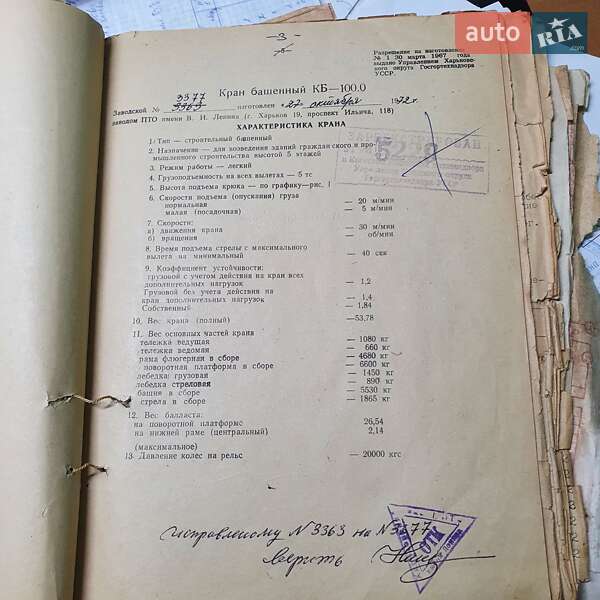 auto RIA
— 3 —
Разрешение на изготовление
№ 1 30 марта 1967 года
выдано Управлением Харьков-
ского округа Госгортехнадзора
УССР.
Кран башенный КБ—100.0
3377
Заводской № 3363 изготовлен «27» октября 1972 г.
заводом ПТО имени В. И. Ленина (г. Харьков 19, проспект Ильича, 118)
ХАРАКТЕРИСТИКА КРАНА
1. Тип — строительный башенный
2. Назначение — для возведения зданий гражданского и про-
мышленного строительства высотой 5 этажей
3. Режим работы — легкий
4. Грузоподъемность на всех вылетах — 5 тс
5. Высота подъема крюка — по графику—рис. 1
6. Скорости подъема (опускания) груза
нормальная — 20 м/мин
малая (посадочная) — 5 м/мин
7. Скорости:
а) движения крана — 30 м/мин
б) вращения — об/мин
8. Время подъема стрелы с максимального
вылета на минимальный — 40 сек
9. Коэффициент устойчивости:
грузовой с учетом действия на кран всех
дополнительных нагрузок — 1,2
Грузовой без учета действия на
кран дополнительных нагрузок — 1,4
Собственный — 1,84
10. Вес крана (полный) —53,78
11. Вес основных частей крана
тележка ведущая — 1080 кг
тележка ведомая — 660 кг
рама флюгерная в сборе — 4680 кг
поворотная платформа в сборе — 6600 кг
лебедка грузовая — 1450 кг
лебедка стреловая — 890 кг
башня в сборе — 5530 кг
стрела в сборе — 1865 кг
12. Вес балласта:
на поворотной платформе 26,54
на нижней раме (центральный) 2,14
(максимальное)
13. Давление колес на рельс — 20000 кгс
исправленому N 3363 на N 3377
верить
ОТК